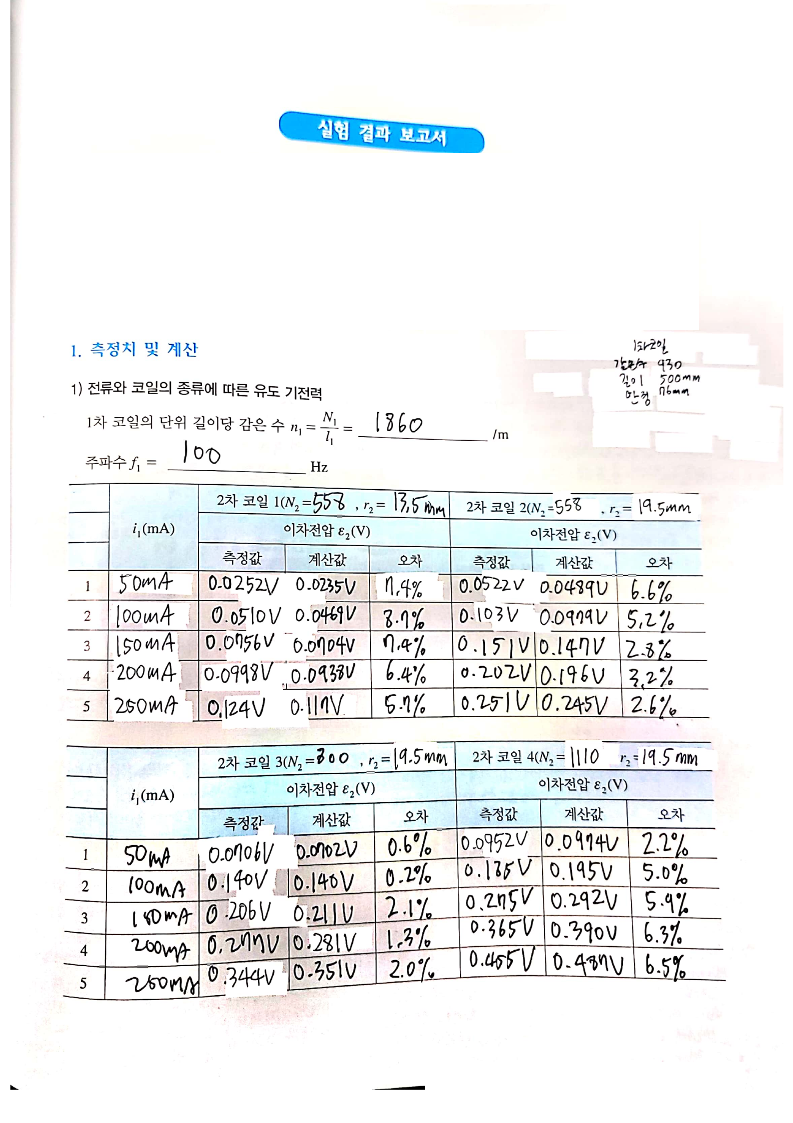 실험 결과 보고서
1. 측정치 및 계산
1차코일
감은수 930
길이 500mm
반경 76mm
1) 전류와 코일의 종류에 따른 유도 기전력
1차 코일의 단위 길이당 감은 수 n₁ = N₁/l₁ = 1860 /m
주파수 f₁ = 100 Hz
i₁(mA) 2차 코일 1(N₂=558, r₂= 13.5mm 2차 코일 2(N₂=558, r₂= 19.5mm
이차전압 ε₂(V) 이차전압 ε₂(V)
측정값 계산값 오차 측정값 계산값 오차
1 50mA 0.0252V 0.0235V 7.4% 0.0522V 0.0489V 6.6%
2 100mA 0.0510V 0.0469V 8.7% 0.103V 0.0979V 5.2%
3 150mA 0.0756V 0.0704V 7.4% 0.151V 0.147V 2.8%
4 200mA 0.0998V 0.0938V 6.4% 0.202V 0.196V 3.2%
5 250mA 0.124V 0.117V 5.7% 0.251V 0.245V 2.6%
i₁(mA) 2차 코일 3(N₂=800, r₂= 19.5mm 2차 코일 4(N₂= 1110 r₂=19.5mm
이차전압 ε₂(V) 이차전압 ε₂(V)
측정값 계산값 오차 측정값 계산값 오차
1 50mA 0.0706V 0.0702V 0.6% 0.0952V 0.0974V 2.2%
2 100mA 0.140V 0.140V 0.2% 0.185V 0.195V 5.0%
3 150mA 0.206V 0.211V 2.1% 0.275V 0.292V 5.9%
4 200mA 0.277V 0.281V 1.3% 0.365V 0.390V 6.3%
5 250mA 0.344V 0.351V 2.0% 0.455V 0.487V 6.5%